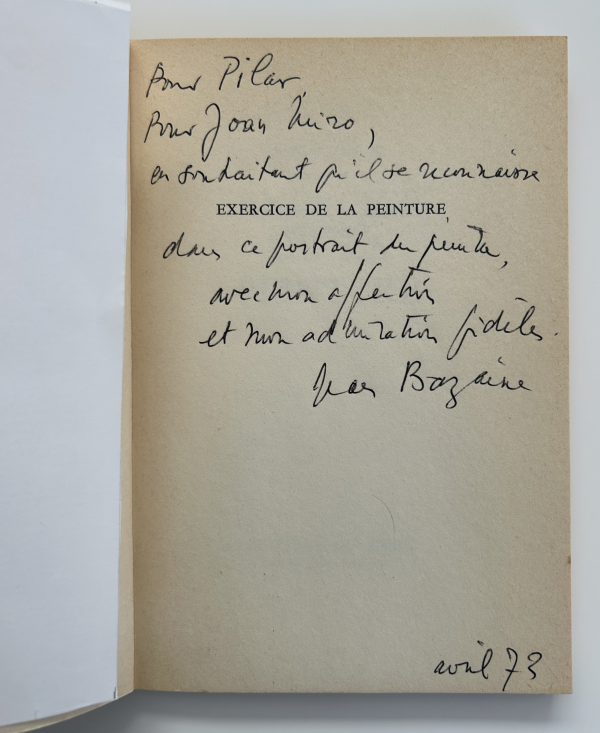 Pour Pilar,
Pour Joan Miro,
en souhaitant qu'il se reconnaisse
EXERCICE DE LA PEINTURE
dans ce portrait du peintre,
avec mon affection
et mon admiration fidèles.
Jean Bazaine
avril 73